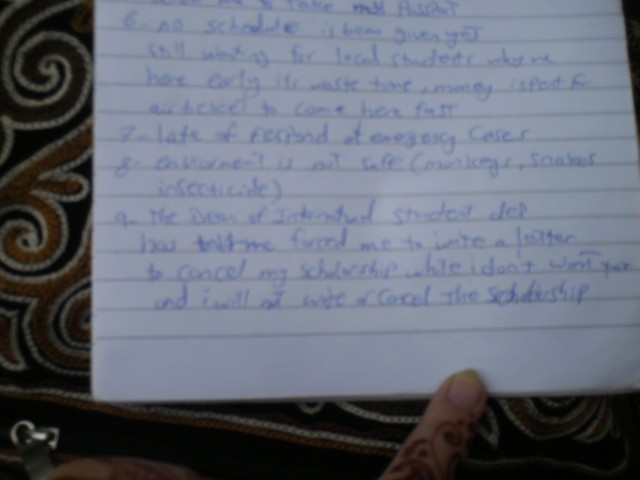 to take Passport
6- no schedule is been given yet
still waiting for local students why we
here early its waste time, money spent for
airticket to come here fast
7- late of respond at emergency cases
8- enviroment is not safe (monkeys, snakes
insecticide)
9- The Dean of student dep
has me forced me to write a letter
to cancel my scholarship while i don't want
and i will not write or cancel the scholarship